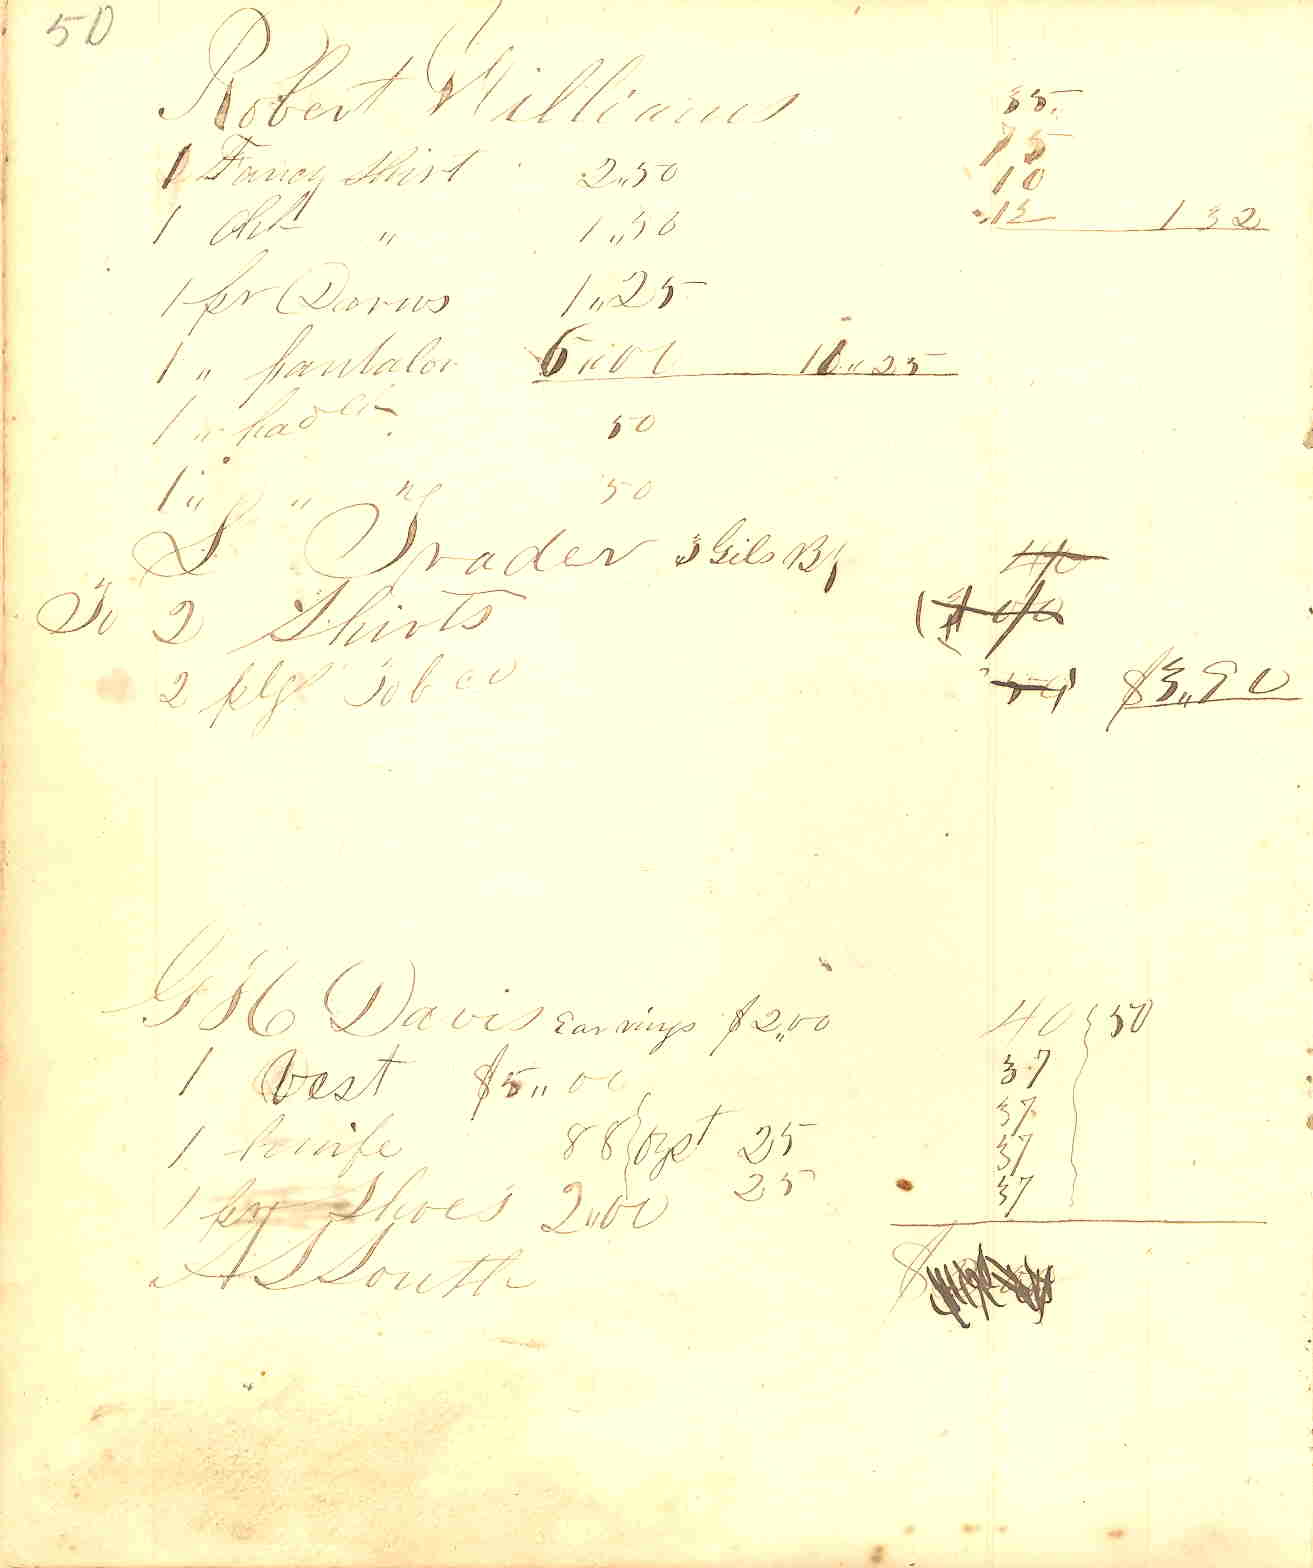 50
Robert Williams 35
75
1 Fancy Shirt 2,,50 10
1 Chk " 1,,50 12 1 32
1 pr Darws 1,,25
1 " pantaloo 6,,00 11,,25
1 " hadch 50
1 " " " 50
S Trader 3 Gils By 40
To 2 Shirts 00
2 plgs Tobco 50 $3,,90
G H Davis Earrings $2,,00 40 } 50
1 Vest $5,,00 37
37
1 knife 88 { oyst 25 37
1 pr Shoes 2,,00 25 37
A S South $